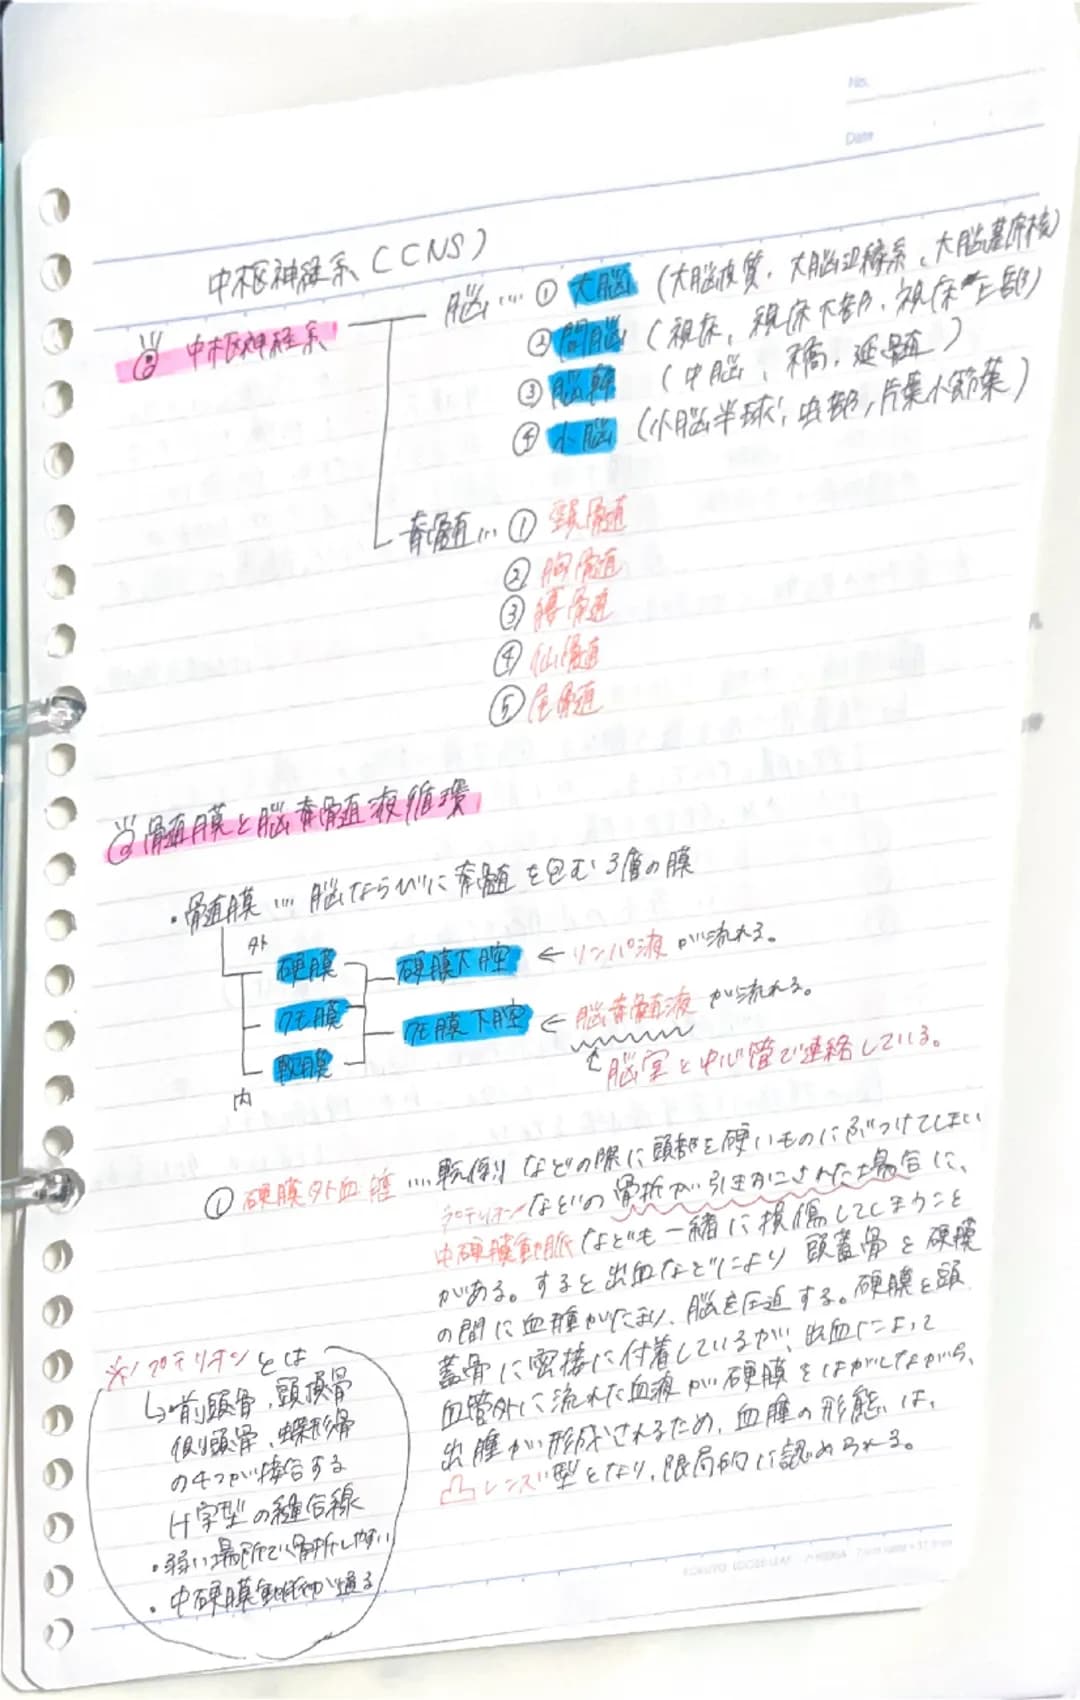 No.
Date
中枢神経系 (CNS)
中枢神経系
脳… ① 大脳 (大脳皮質, 大脳辺縁系, 大脳基底核)
② 間脳 (視床, 視床下部, 視床上部)
③ 脳幹 (中脳, 橋, 延髄)
④ 小脳 (小脳半球, 虫部, 片葉小節葉)
脊髄… ① 頸髄
② 胸髄
③ 腰髄
④ 仙髄
⑤ 尾髄
髄膜と脳脊髄液循環
・髄膜… 脳ならびに脊髄を包む3層の膜
外
硬膜 硬膜下腔 ← リンパ液が流れる。
クモ膜 クモ膜下腔 ← 脳脊髄液が流れる。
軟膜
脳室と中心管で連絡している。
内
① 硬膜外血腫…転倒などの際に頭部を硬いものにぶつけてしまい
プテリオンなどの骨折が引き起こされた場合に、
中硬膜動脈なども一緒に損傷してしまうこと
がある。すると出血などにより頭蓋骨と硬膜
の間に血腫がたまり、脳を圧迫する。硬膜と頭
蓋骨に密接に付着しているが、出血によって
血管外に流れた血液が硬膜をはがしながら、
血腫が形成されるため、血腫の形態は、
凸レンズ型となり、限局的に認められる。
※プテリオンとは
↳前頭骨、頭頂骨
側頭骨、蝶形骨
の4つが接合する
H字型の縫合線
・弱い場所で骨折しやすい
・中硬膜動脈が通る